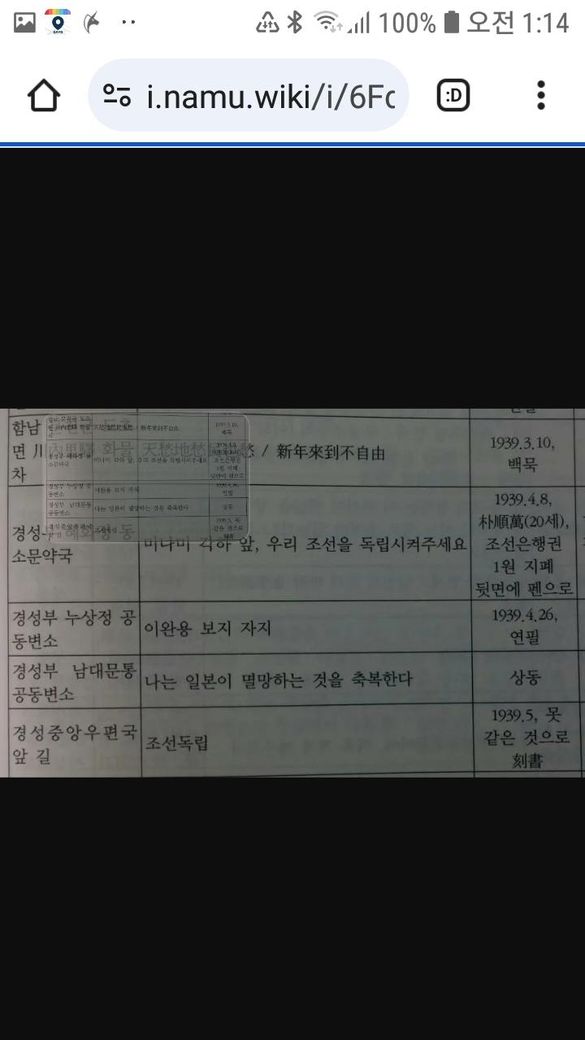 100% 오전 1:14
i.namu.wiki/i/6Fc
:D
함남
面 川内里驛 화물
차
天愁地愁 愁 / 新年來到不自由
1939.3.10,
백묵
경성
소문약국
미나미 각하 앞, 우리 조선을 독립시켜주세요
1939.4.8,
朴順萬(20세),
조선은행권
1원 지폐
뒷면에 펜으로
경성부 누상정 공
동변소
이완용 보지 자지
1939.4.26,
연필
경성부 남대문통
공동변소
나는 일본이 멸망하는 것을 축복한다
상동
경성중앙우편국
앞 길
조선독립
1939.5, 못
같은 것으로
刻書